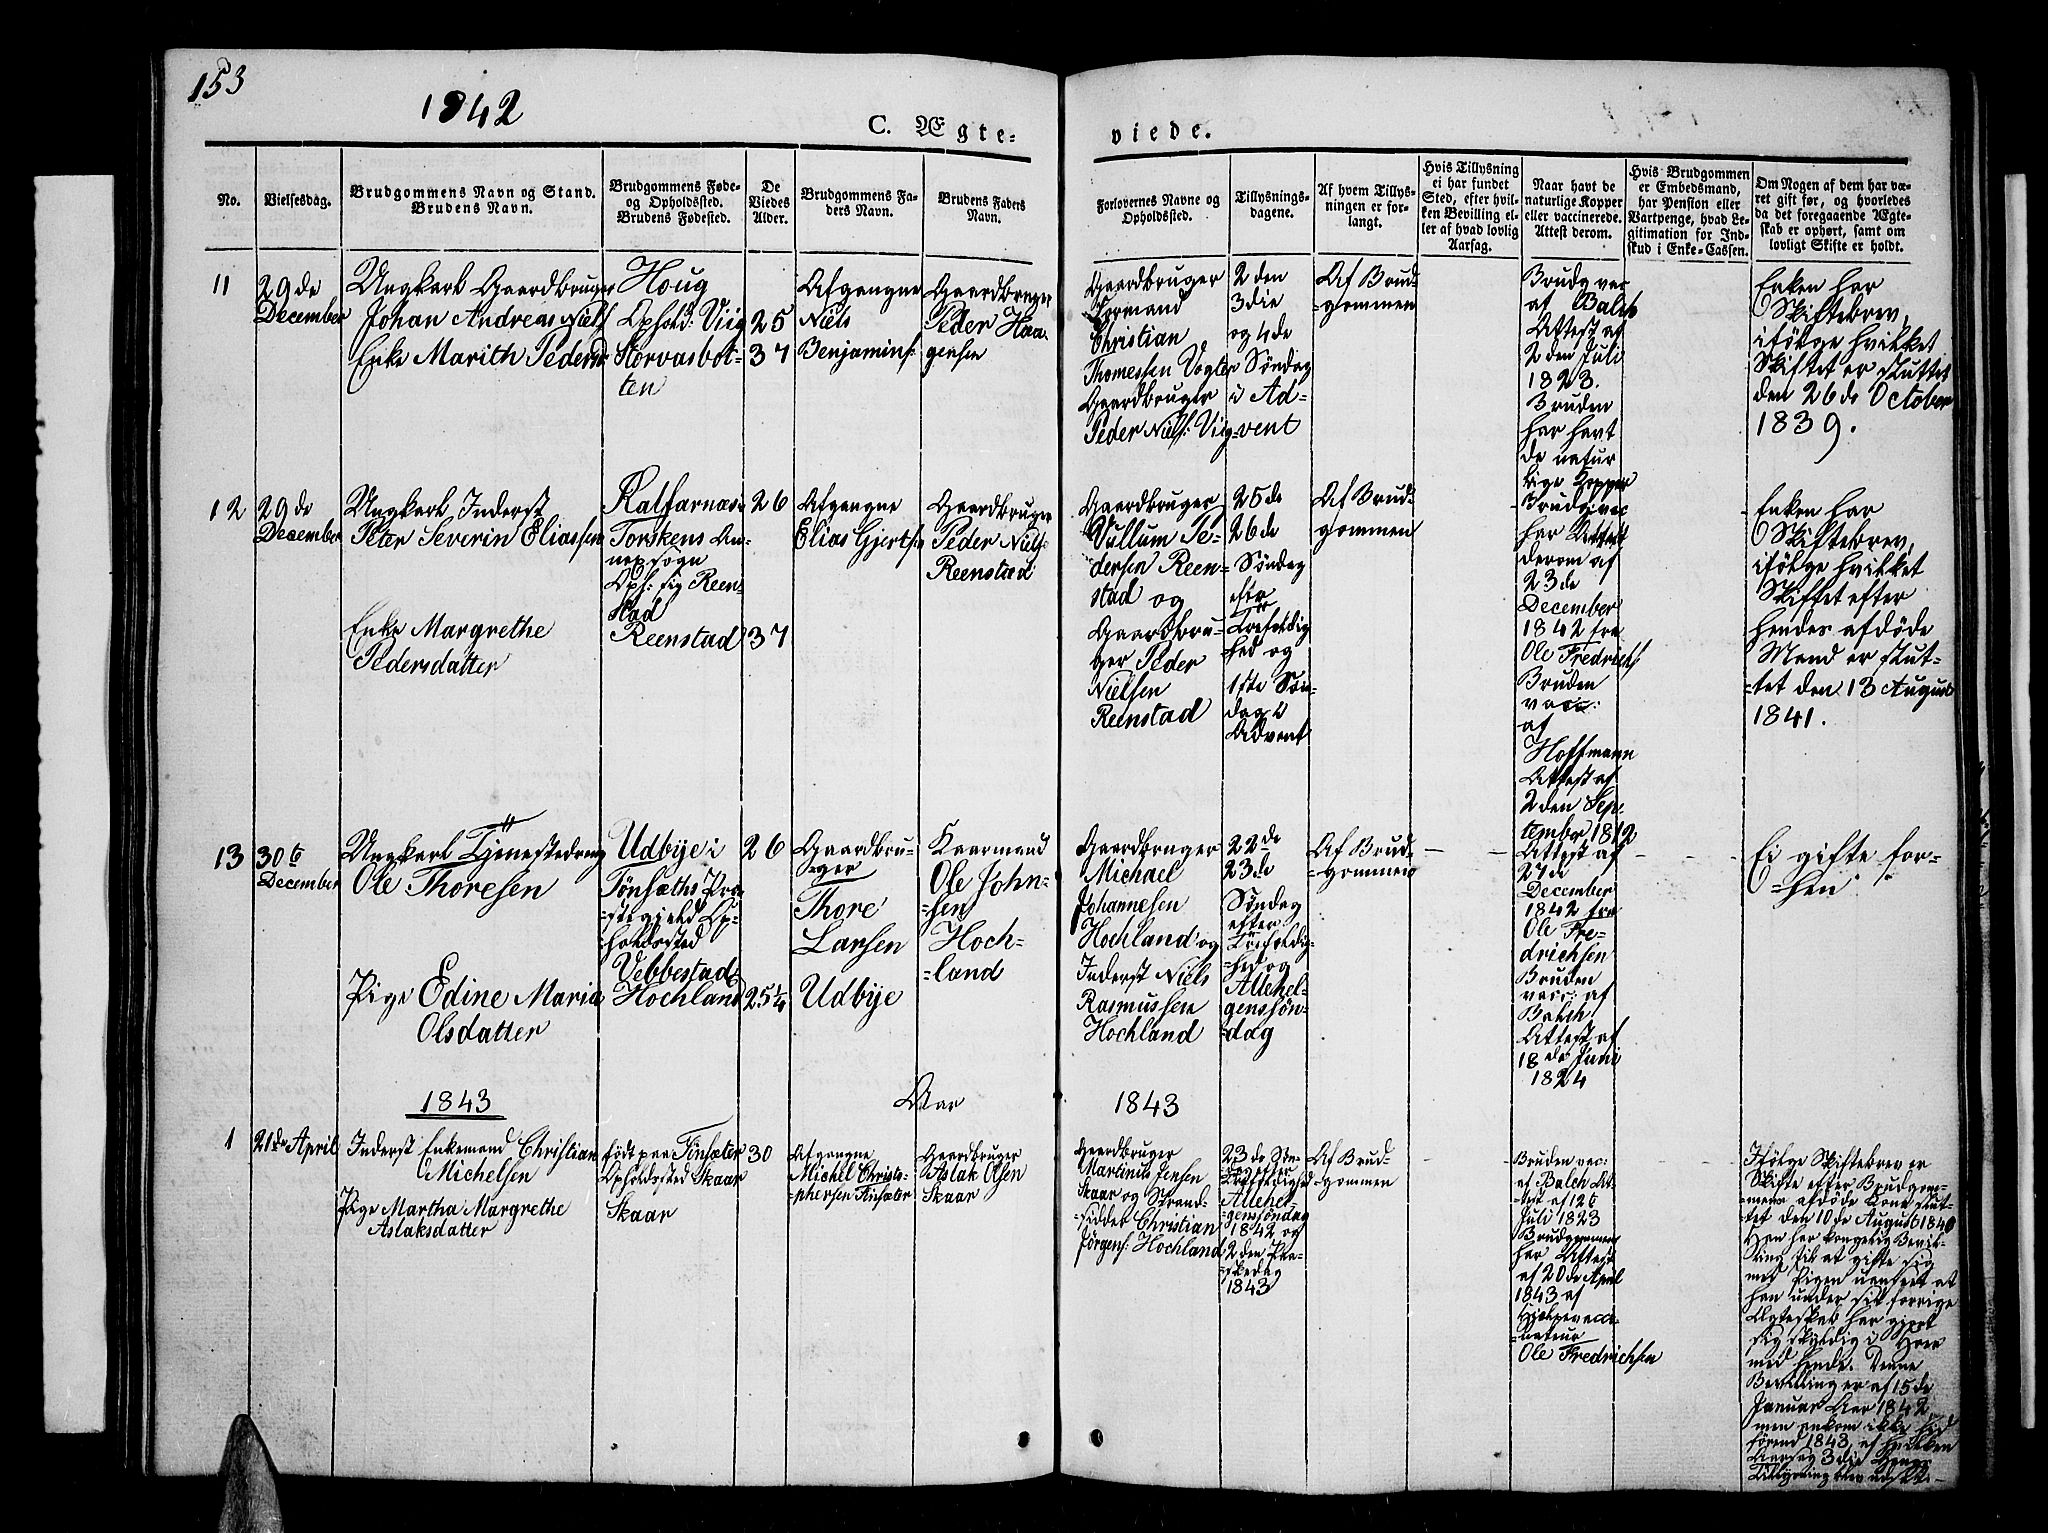 153
1842
C. Ægte-
viede.
No.
Vielsesdag.
Brudgommens Navn og Stand.
Brudens Navn.
Brudgommens Føde-
og Opholdssted.
Brudens Fødested.
De
Viedes
Alder.
Brudgommens Fa-
ders Navn.
Brudens Faders
Navn.
Forlovernes Navne og
Opholdssted.
Tillysnings-
dagene.
Af hvem Tillys-
ningen er for-
langt.
Hvis Tillysning
ei har fundet
Sted, efter hvil-
ken Bevilling el-
ler af hvad lovlig
Aarsag.
Naar havt de
naturlige Kopper
eller vaccinerede.
Attest derom.
Hvis Brudgommen
er Embedsmand,
har Pension eller
Vartpenge, hvad Le-
gitimation for Ind-
skud i Enke-Cassen.
Om Nogen af dem har væ-
ret gift før, og hvorledes
da det foregaaende Ægte-
skab er ophørt, samt om
lovligt Skifte er holdt.
11
29de
December
Ungkarl Gaardbruger
Johan Andreas Niels
Enke Marith Peders
Houg
Ophold: Viig
Storvasbot-
ten
25
37
Afgangne
Niels
Benjamins:
Gaardbruger
Peder Haa-
gensen
Gaardbruger
Formand
Christian
Thomessen Vogter
Gaardbruger
Peder Niels: Viig
2den
3die
og 4de
Søndag
i Ad-
vent
Af Brud-
gommen
Brudg vac
af Balch
Attest af
2den Juli
1823.
Bruden
har havt
de natur
lige Kopper
Enken har
Skiftebrev,
ifølge hvilket
Skiftet er sluttet
den 26de October
1839.
12
29de
December
Ungkarl Inderst
Peter Severin Eliassen
Enke Margrethe
Pedersdatter
Kalfarnæs
Torskens An-
nexsogn
Oph: sig Reen-
stad
Reenstad
26
37
Afgangne
Elias Gjerts
Gaardbruger
Peder Niels
Reenstad
Gaardbruger
Vullum Pe-
dersen Reen-
stad og
Gaardbru-
ger Peder
Nielsen
Reenstad
25de
26de
Søndag
efter
Trefoldig
hed og
1ste Søn-
dag i
Advent
Af Brud
gommen
Brudg. vac
har Attest
derom af
23de
December
1842 fra
Ole Fredrichs
Bruden
vacc:
af
Hoffmann
Attest af
2den Sep
tember 1812
Enken har
Skiftebrev,
ifølge hvilket
Skiftet efter
hendes afdøde
Mand er slut-
-tet den 13 August
1841.
13
30te
December
Ungkarl Tjenestedreng
Ole Thoresen
Pige Edine Maria
Olsdatter
Udbye i
Tønsæths Præ
stegjeld Op-
holdssted
Vebbestad
Hochland
26
25 1/4
Gaardbru-
ger
Thore
Larsen
Udbye
Kaarmand
Ole John-
-sen
Hoch-
-land
Gaardbruger
Michael
Johannesen
Hochland og
Inderst Niels
Rasmussen
Hochland
22de
23de
Søndag
efter
Trefoldig-
-hed og
Allehel-
genssøn-
-dag
Af Brud
-gommen
Attest af
27de
December
1842 fra
Ole Fre-
drichsen
Bruden
vacc: af
Balch
Attest af
18de Juni
1824
Ei gifte for-
-hen
1843
Aar
1843
1
21de April
Inderst Enkemand Christian
Michelsen
Pige Martha Margrethe
Aslaksdatter
født paa Finsæter
Opholdssted Skaar
Skaar
30
Afgangne
Michel Christo-
phersen Finsæter
Gaardbruger
Aslak Olsen
Skaar
Gaardbruger
Martinus Jensen
Skaar og Strand-
-sidder Christian
Jørgens: Hochland
23de Søn-
dag efter
Trefoldighed
Allehel-
-genssøndag
1842 og
2den Paa-
-skedag
1843
Af Brud-
gommen
Bruden vac:
af Balch At-
test af 12te
Juli 1823
Brudgommen
har Attest
af 20de April
1843 af
Hjelpevacci-
-nateur
Ole Fredrichsen
Ifølge Skiftebrev er
Skifte efter Brudgom-
mens afdøde Kone slut-
tet den 10de August 1840
Han har kongelig Bevil-
ling til at gifte sig
med Pigen uanseet at
han under sit forrige
Ægteskab har gjort
sig skyldig i Hoer
med hende. Denne
Bevilling er af 15de
Januar Aar 1842,
men ankom ikke hid
førend 1843, af hvilken
Aarsag 3die Gangs
Tillysning blev udsat